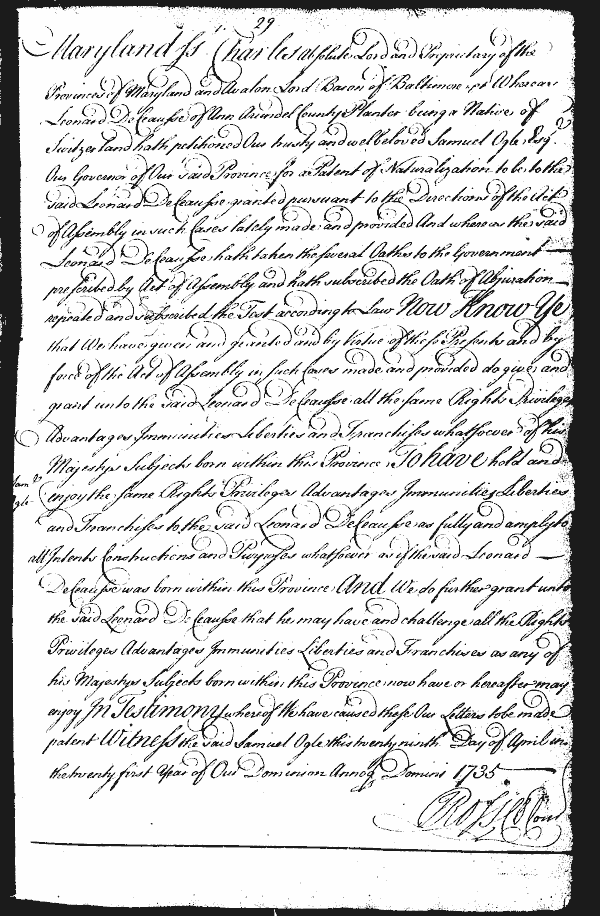 29
Maryland ss Charles absolute Lord and Proprietary of the
Provinces of Maryland and Avalon Lord Baron of Baltimore &ct Whereas
Leonard DeCausse of Ann Arundel County Planter being a Native of
Switzerland hath petitioned Our trusty and welbeloved Samuel Ogle Esqr
Our Governor of Our said Province for a Patent of Naturalization to be to the
said Leonard DeCausse granted pursuant to the Directions of the Act
of Assembly in such Cases lately made and provided And whereas the said
Leonard DeCausse hath taken the several Oaths to the Government
prescribed by Act of Assembly and hath subscribed the Oath of Abjuration
repeated and subscribed the Test according to Law Now Know Ye
that We have given and granted and by Virtue of these Presents and by
force of the Act of Assembly in such Cases made and provided do give and
grant unto the said Leonard DeCausse all the same Rights Privileges
Advantages Immunities Liberties and Franchises whatsoever of his
Majestys Subjects born within this Province To have hold and
Sam
Ogle
enjoy the same Rights Privileges Advantages Immunities Liberties
and Franchises to the said Leonard DeCausse as fully and amply to
all Intents Constructions and Purposes whatsoever as if the said Leonard
DeCausse was born within this Province And We do further grant unto
the said Leonard DeCausse that he may have and challenge all the Rights
Privileges Advantages Immunities Liberties and Franchises as any of
his Majestys Subjects born within this Province now have or hereafter may
enjoy In Testimony whereof We have caused these Our Letters to be made
patent Witness the said Samuel Ogle this twenty ninth Day of April in
the twenty first Year of Our Dominion Annoq Domini 1735